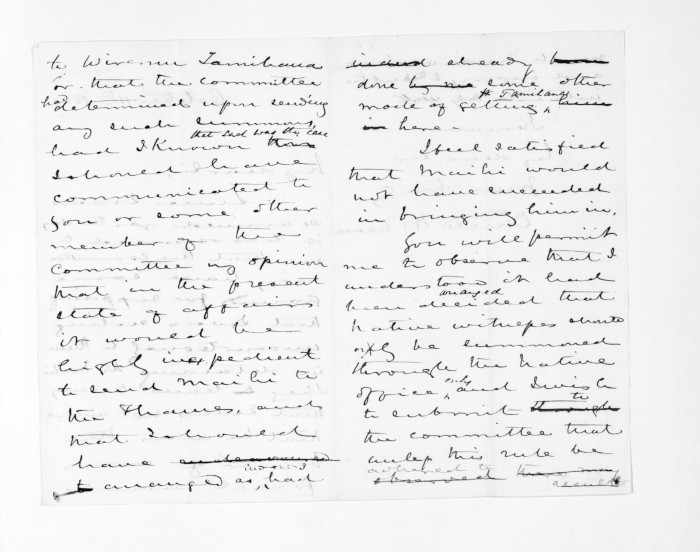 to Wiremu Tamihana
or that the committee
had determined upon sending
any such summons,
that such was the case
had I known this
I should have
communicated to
you or some other
member of the
committee my opinion
that in the present
state of affairs
it would be
highly inexpedient
to send Maihi to
the Thames, and
that I should
have endeavoured
to arranged as, indeed I had
indeed already been
done by me some other
mode of getting W Tamihana him
in here.
I feel satisfied
that Maihi would
not have succeeded
in bringing him in.
You will permit
me to observe that I
understood it had
been arranged decided that
Native witnesses should
only be summoned
through the Native
office only, and I wish
to submit through to
the committee that
unless this rule be
adhered to there may
observed result